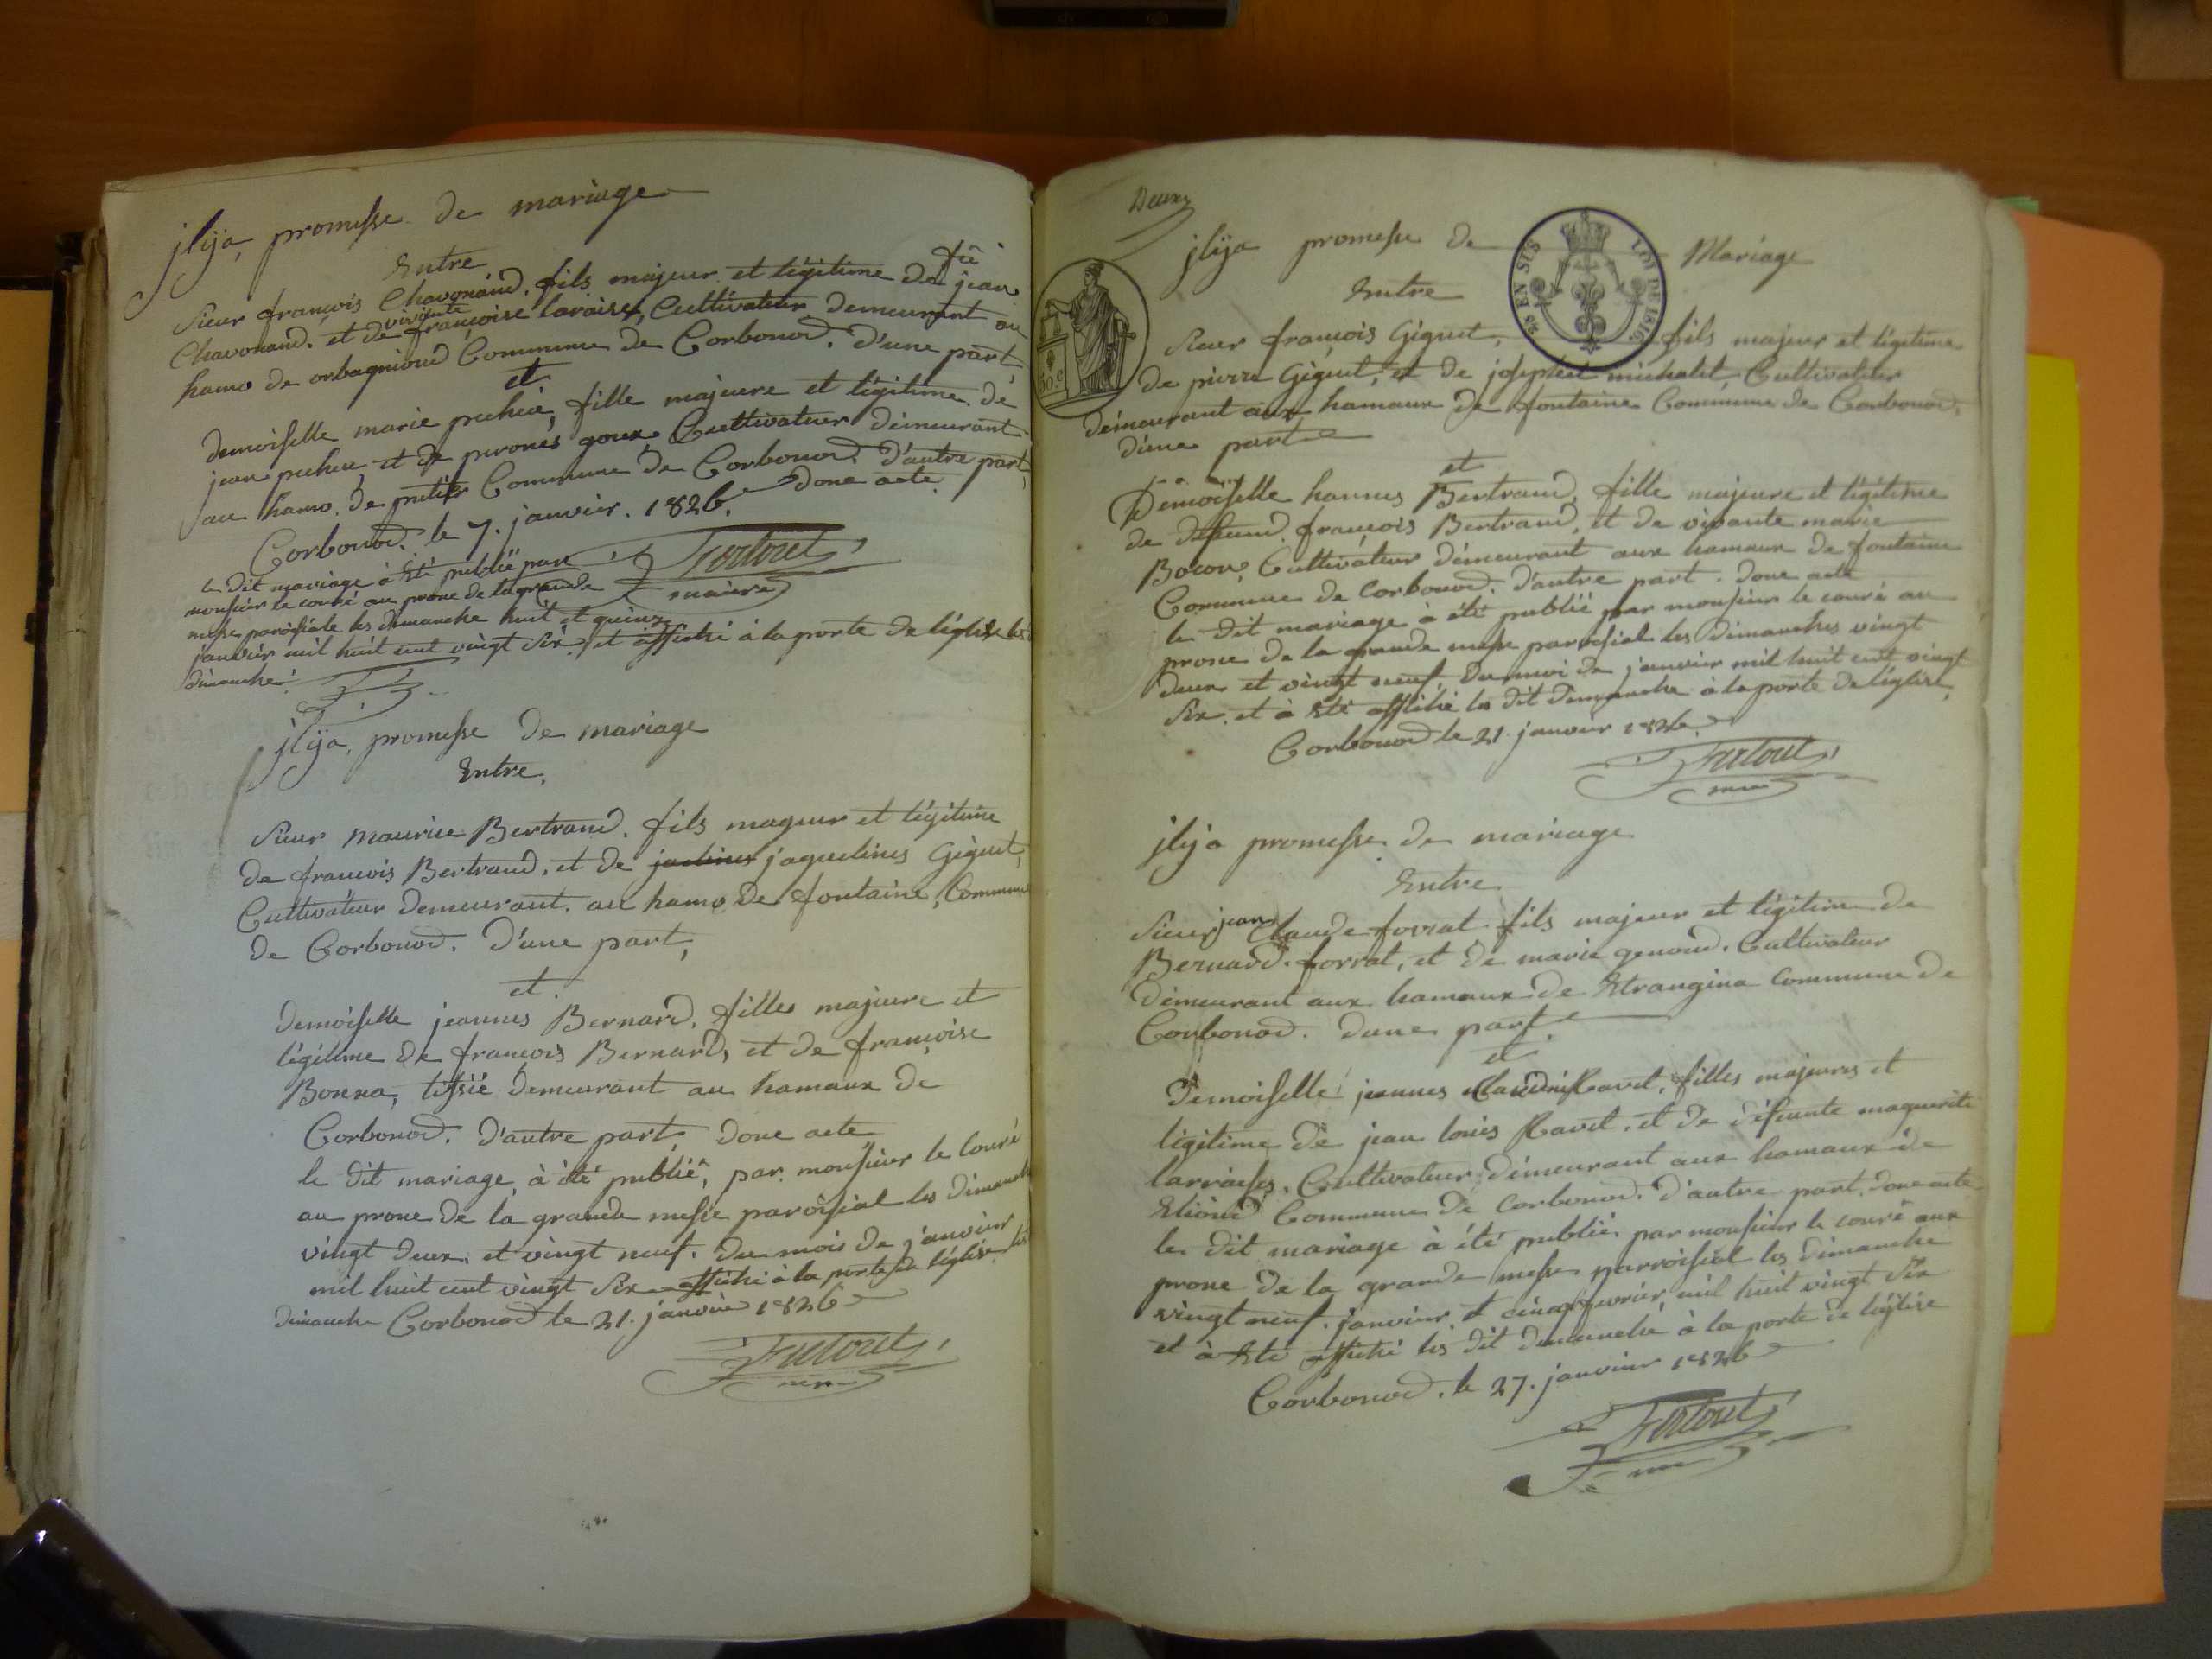 jlija, promesse de mariage
Entre
fû
Sieur françois Chavonand. fils majeur et légitime de jean
vivante
Chavonand. et de françoise laraise, Cultivateur demeurant au
hamo de orbagnioud Commune de Corbonod. d'une part,
et
demoiselle marie puhué, fille majuere et légitime. de
jean puhué, et de peronés goux Cultivateur demeurant
au hamo. de Commune de Corbonod. d'autre part,
donc acte
Corbonod. le 7. janvier. 1826.
le dit mariage à été publië par
monsieur le couré au prone de la grande
messe paroisiale les dimanche huit et quinze
janvier mil huit cent vingt six et affiché à la porte de léglise les
dimanche.
Fortoret
maire
jlÿa, promesse de mariage
Entre.
Sieur Maurice Bertrand. fils mageur et légitime
de francois Bertrand, et de jaclines jaquelines Giguet,
Cultivateur demeurant. au hamo de fontaine, Commune
de Corbonod. D'une part,
et
demoiselle jeannes Bernard. filles majuere et
légitime de françois Bernard, et de françoise
Bonna, tissié demeurant au hamaux de
Corbonod. d'autre part, donc acte
le dit mariage, à été publié, par. monsieur le Couré
au prone de la grande messe paroisial les dimanche
vingt deux. et vingt neuf. du mois de janvier
mil huit cent vingt six affiché à la porte de léglise les
dimanche Corbonod le 21. janvier 1826
Fortoret
Deux
jlÿa promesse de Mariage
EN SUS LOI DE 1816
50.c
Entre
Sieur françois Giguet, fils majeur et légitime
de pierre Giguet, et de josephte michalet, Cultivateur
demeurant aux hamaux de fontaine Commune de Corbonod.
d'une part
et
Demoiselle hannes Bertrand, fille majeure et légitime
de defeund françois Bertrand, et de vivante marie
Bocon, Cultivateur demeurant aux hamaux de fontaine
Commune de Corbonod. d'autre part. donc acte
le dit mariage à été publié par monsieur le couré au
prone de la grande messe paroisial les dimanches vingt
deux et vingt neuf. du moi de janvier mil huit cent vingt
six. et à été affiché les dit dimanche à la porte de léglise,
Corbonod le 21. janvier 1826.
Fortoret
jlija promesse de mariage
Entre
Sieur jean Claude forrat fils majeur et légitime de
Bernard. forrat, et de marie genoud. Cultivateur
demeurant aux hamaux de Etrangina commune de
Corbonod. dune part
et
Demoiselle jeannes Claudine Ravet, filles majeures et
légitime de jean louis Ravet. et de défeunte maguerite
larraises, Cultivateur demeurant aux hamaux de
Elioud Commune de Corbonod. d'autre part. donc acte
le dit mariage à été publié par monsieur le couré aux
prone de la grande messe parroisial les dimanche
vingt neuf. janvier, et cinq fevrier mil huit vingt six
et à été affiché les dit dimanche à la porte de léglise
Corbonod. le 27. janvier 1826
Fortoret